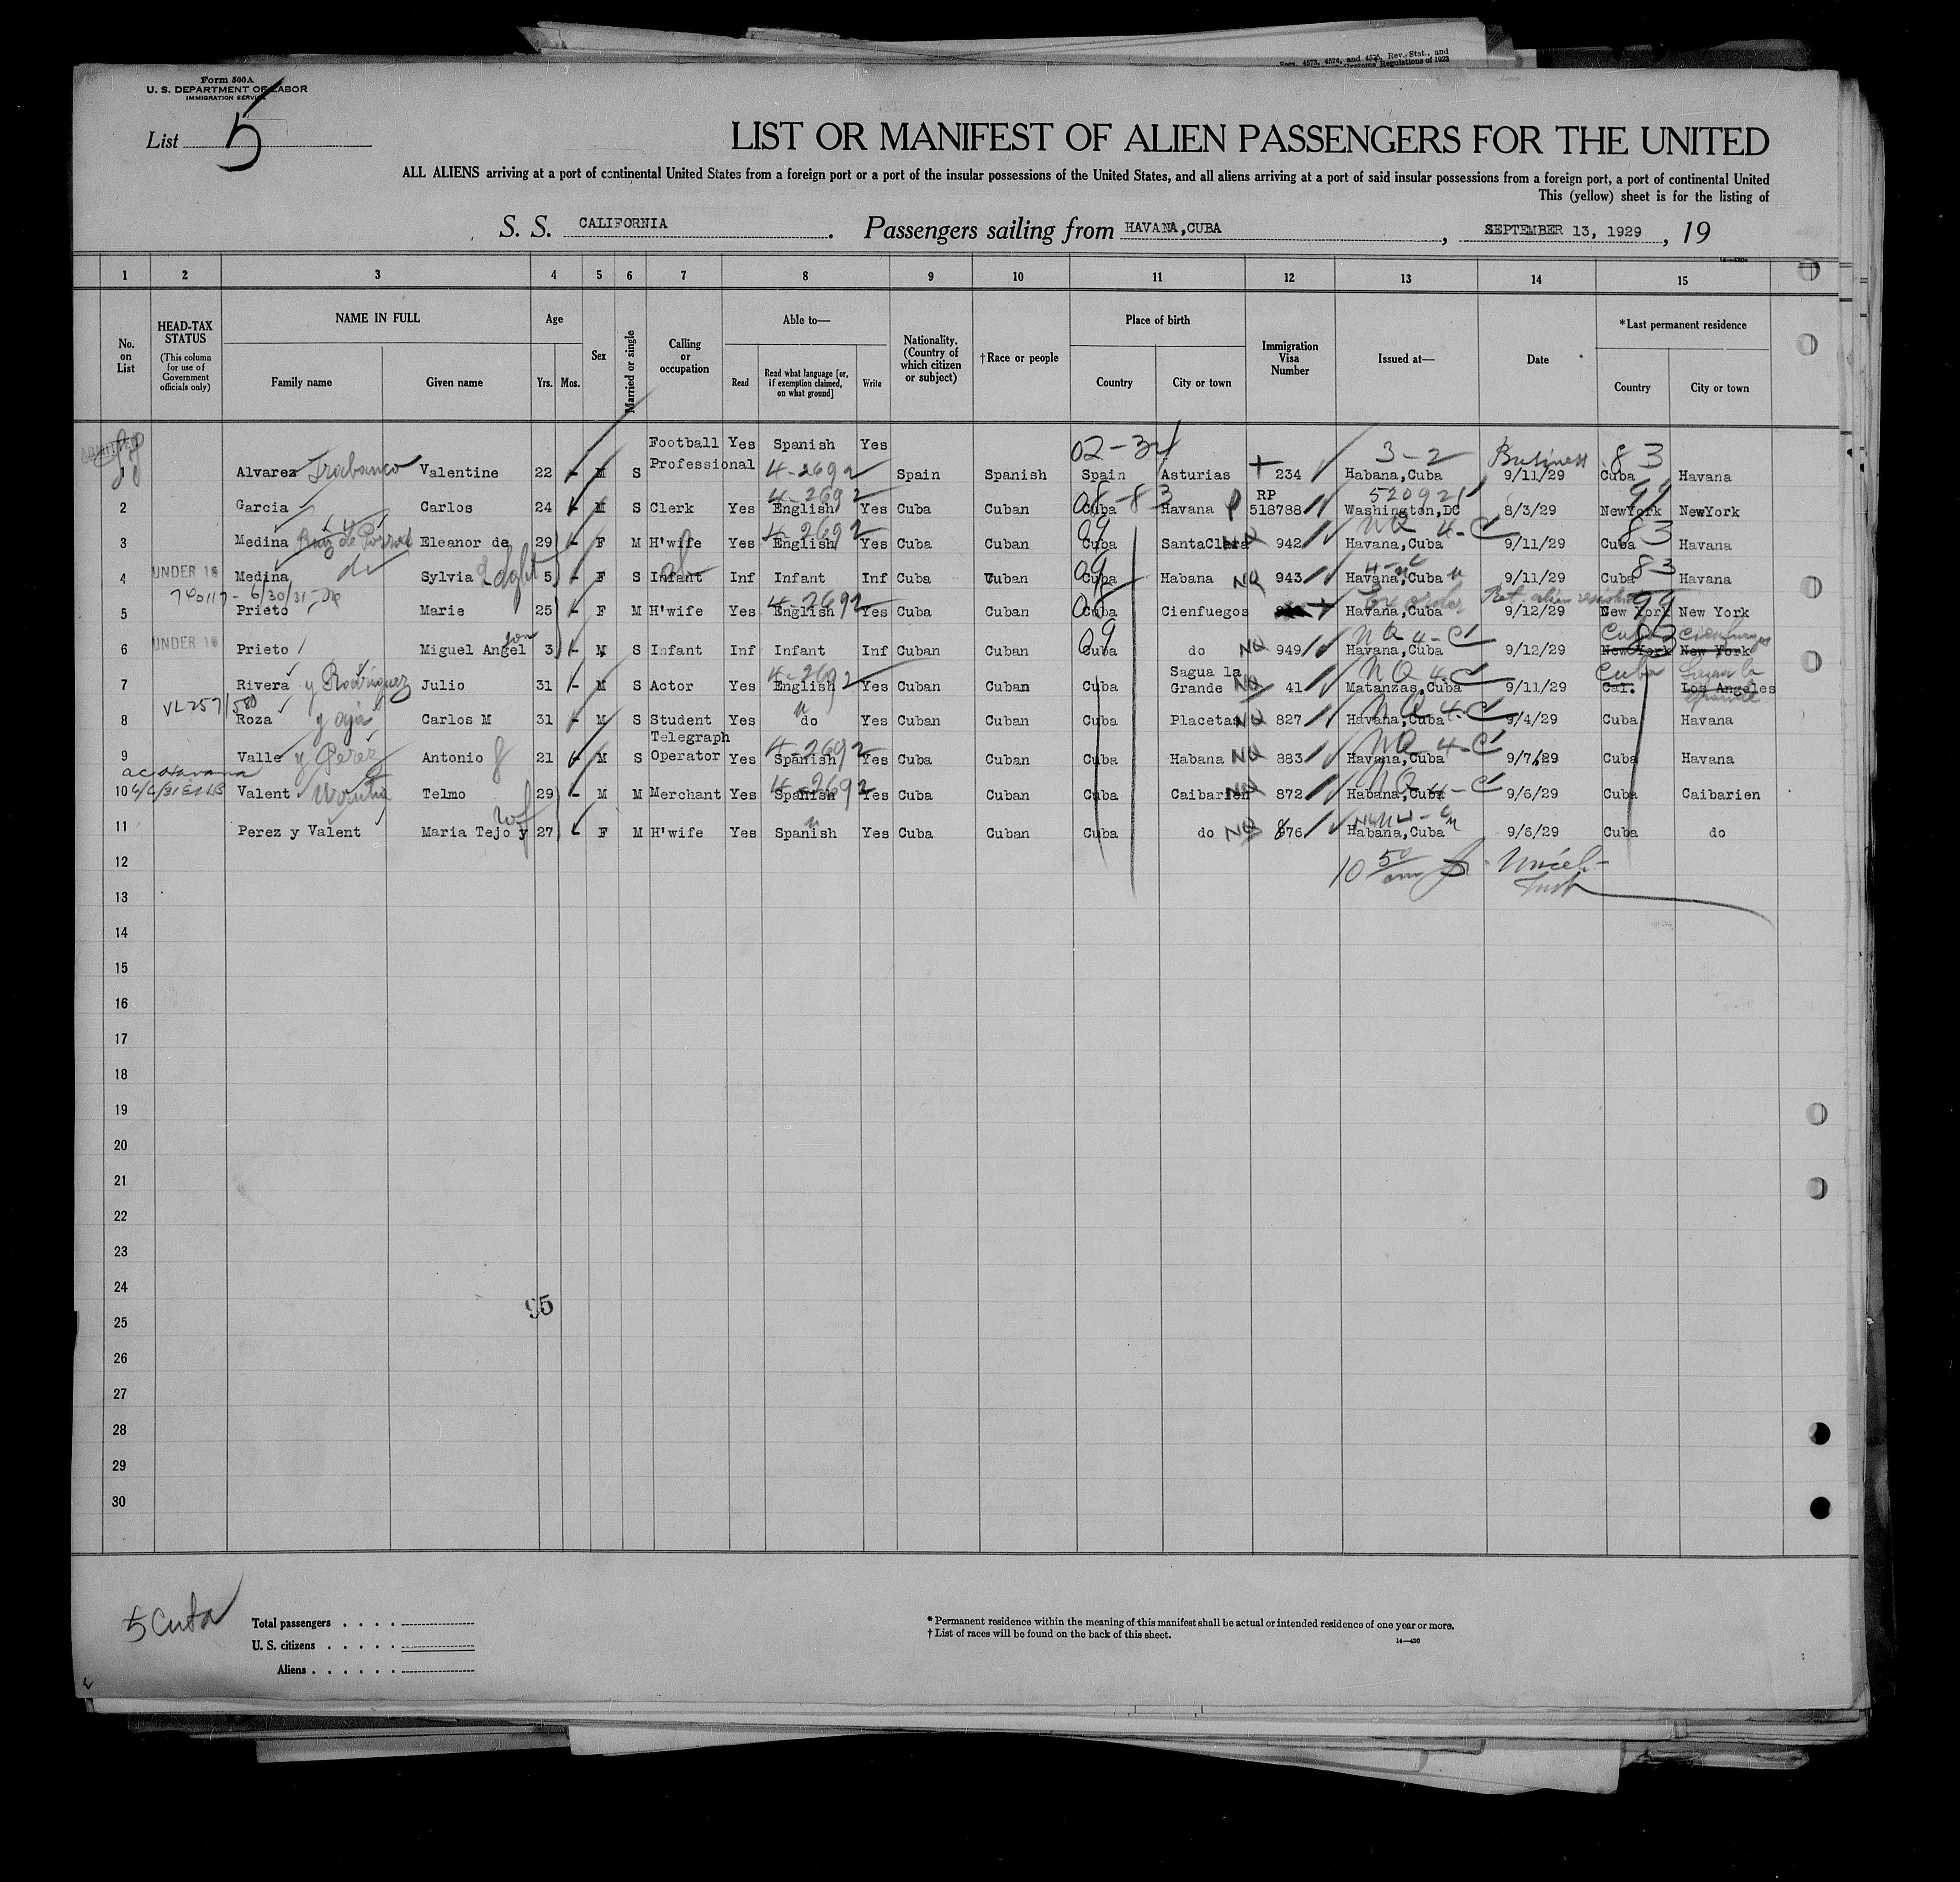 Secs. 4573, 4574, and 4575, Rev. Stat., and
Customs Regulations of 1923
Form 500A
U. S. DEPARTMENT OF LABOR
IMMIGRATION SERVICE
List 5
LIST OR MANIFEST OF ALIEN PASSENGERS FOR THE UNITED
ALL ALIENS arriving at a port of continental United States from a foreign port or a port of the insular possessions of the United States, and all aliens arriving at a port of said insular possessions from a foreign port, a port of continental United
This (yellow) sheet is for the listing of
S. S. CALIFORNIA. Passengers sailing from HAVANA,CUBA, SEPTEMBER 13, 1929, 19
1 2 3 4 5 6 7 8 9 10 11 12 13 14 15
No. on List
HEAD-TAX STATUS (This column for use of Government officials only)
NAME IN FULL Family name Given name
Age Yrs. Mos.
Sex
Married or single
Calling or occupation
Able to— Read Read what language [or, if exemption claimed, on what ground] Write
Nationality. (Country of which citizen or subject)
†Race or people
Place of birth Country City or town
Immigration Visa Number
Issued at—
Date
*Last permanent residence Country City or town
ADMITTED
02-34 3-2 Business 83
1 Alvarez Trabanco Valentine 22 - M S Football Professional Yes Spanish Yes 4-2692 Spain Spanish Spain Asturias 234 Habana,Cuba 9/11/29 Cuba Havana
4-2692 08-83 520921 99
2 Garcia Carlos 24 - M S Clerk Yes English Yes Cuba Cuban Cuba Havana RP 518788 Washington,DC 8/3/29 NewYork NewYork
4-2692 09 NQ 4-C 83
3 Medina Eleanor de 29 - F M H'wife Yes English Yes Cuba Cuban Cuba SantaClara NQ 942 Havana,Cuba 9/11/29 Cuba Havana
de dght 09 4-C 83
4 UNDER 16 Medina Sylvia 5 - F S Infant Inf Infant Inf Cuba Cuban Cuba Habana NQ 943 Havana,Cuba 9/11/29 Cuba Havana
740117 - 6/30/31 4-2692 08 Ret. alien resident 99
5 Prieto Marie 25 - F M H'wife Yes English Yes Cuba Cuban Cuba Cienfuegos Havana,Cuba 9/12/29 New York New York
son 09 NQ 4-C Cuba 83 Cienfuegos
6 UNDER 16 Prieto Miguel Angel 3 - M S Infant Inf Infant Inf Cuban Cuban Cuba do NQ 949 Havana,Cuba 9/12/29 New York New York
4-2692 NQ 4-C Cuba Sagua la Grande
7 Rivera y Rodriguez Julio 31 - M S Actor Yes English Yes Cuban Cuban Cuba Sagua la Grande NQ 41 Matanzas,Cuba 9/11/29 Cal. Los Angeles
VL257/580 NQ 4-C
8 Roza Carlos M 31 - M S Student Yes do Yes Cuban Cuban Cuba Placetas NQ 827 Havana,Cuba 9/4/29 Cuba Havana
4-2692 NQ 4-C
9 Valle y Perez Antonio 21 - M S Telegraph Operator Yes Spanish Yes Cuba Cuban Cuba Habana NQ 883 Havana,Cuba 9/7/29 Cuba Havana
4-2692 NQ 4-C
10 Valent Telmo 29 - M M Merchant Yes Spanish Yes Cuba Cuban Cuba Caibarien NQ 872 Habana,Cuba 9/6/29 Cuba Caibarien
wf
11 Perez y Valent Maria Tejo y 27 - F M H'wife Yes Spanish Yes Cuba Cuban Cuba do NQ 876 Habana,Cuba 9/6/29 Cuba do
12
10 50 am
13
14
15
16
17
18
19
20
21
22
23
24
95
25
26
27
28
29
30
5 Cuba
Total passengers . . . .
U. S. citizens . . . . .
Aliens . . . . . .
* Permanent residence within the meaning of this manifest shall be actual or intended residence of one year or more.
† List of races will be found on the back of this sheet.
14—430